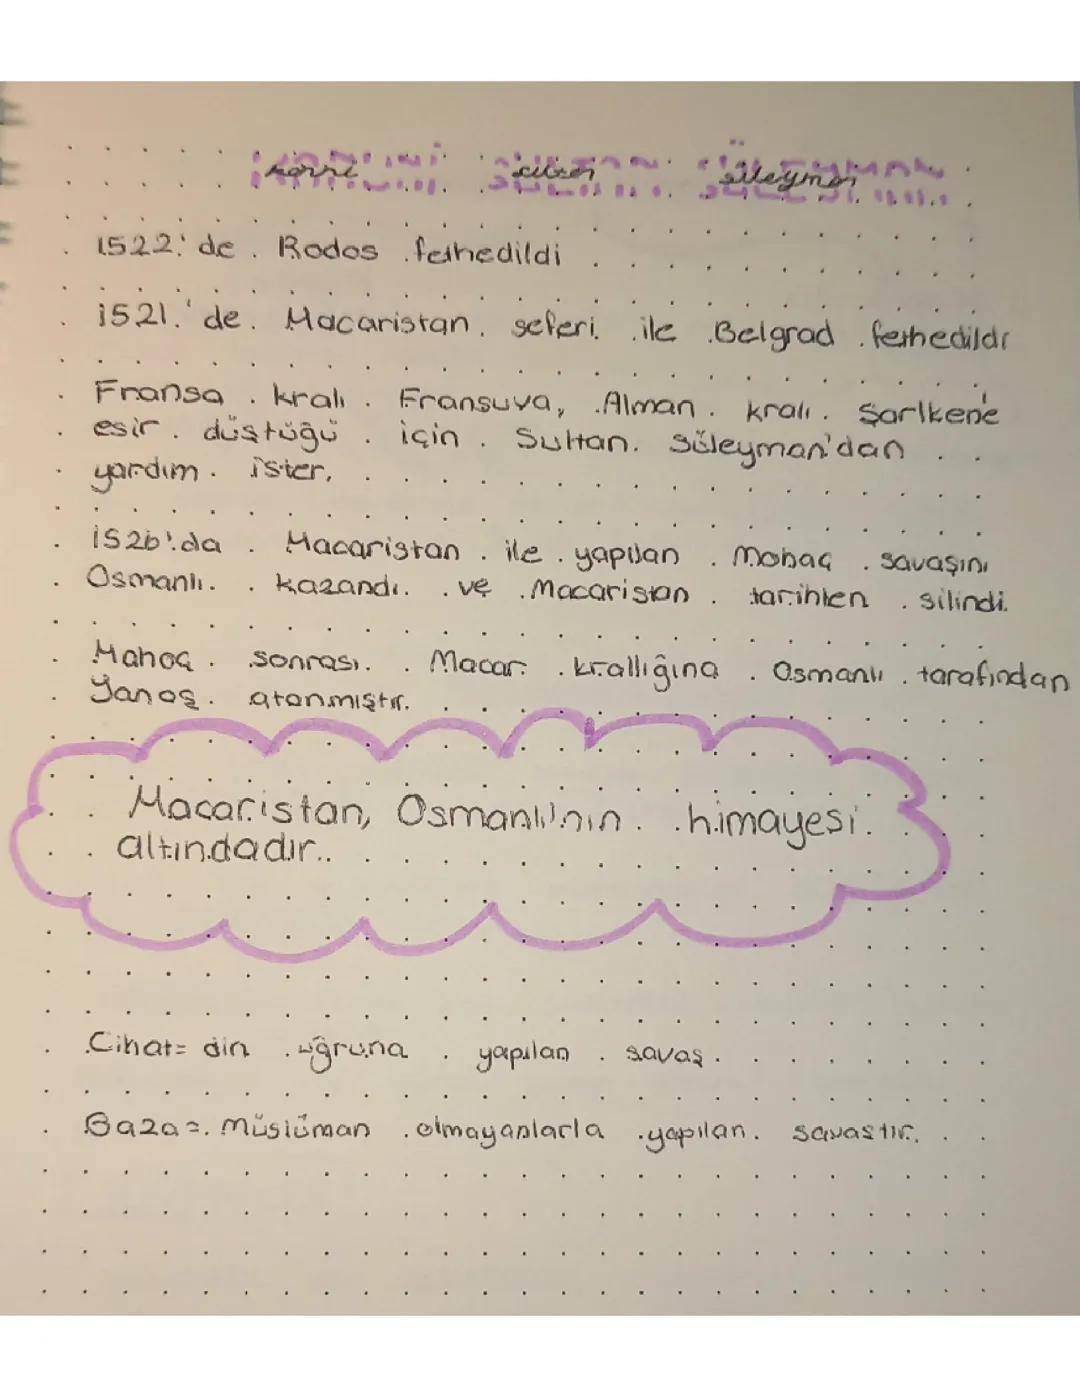 1522'de Rodos fethedildi
1521'de Macaristan seferi ile Belgrad fethedildi
Fransa kralı Fransuva, Alman kralı Şarlken'e
esir düştüğü için Sultan Süleyman'dan
yardım ister.
1526'da Macaristan ile yapılan Mohaç savaşını
Osmanlı kazandı ve Macaristan tarihten silindi.
Mohaç sonrası Macar krallığına Osmanlı tarafından
Yanoş atanmıştır.
Macaristan, Osmanlı'nın himayesi
altındadır..
Cihat= din uğruna yapılan savaş.
Gaza= Müslüman olmayanlarla yapılan savaştır.